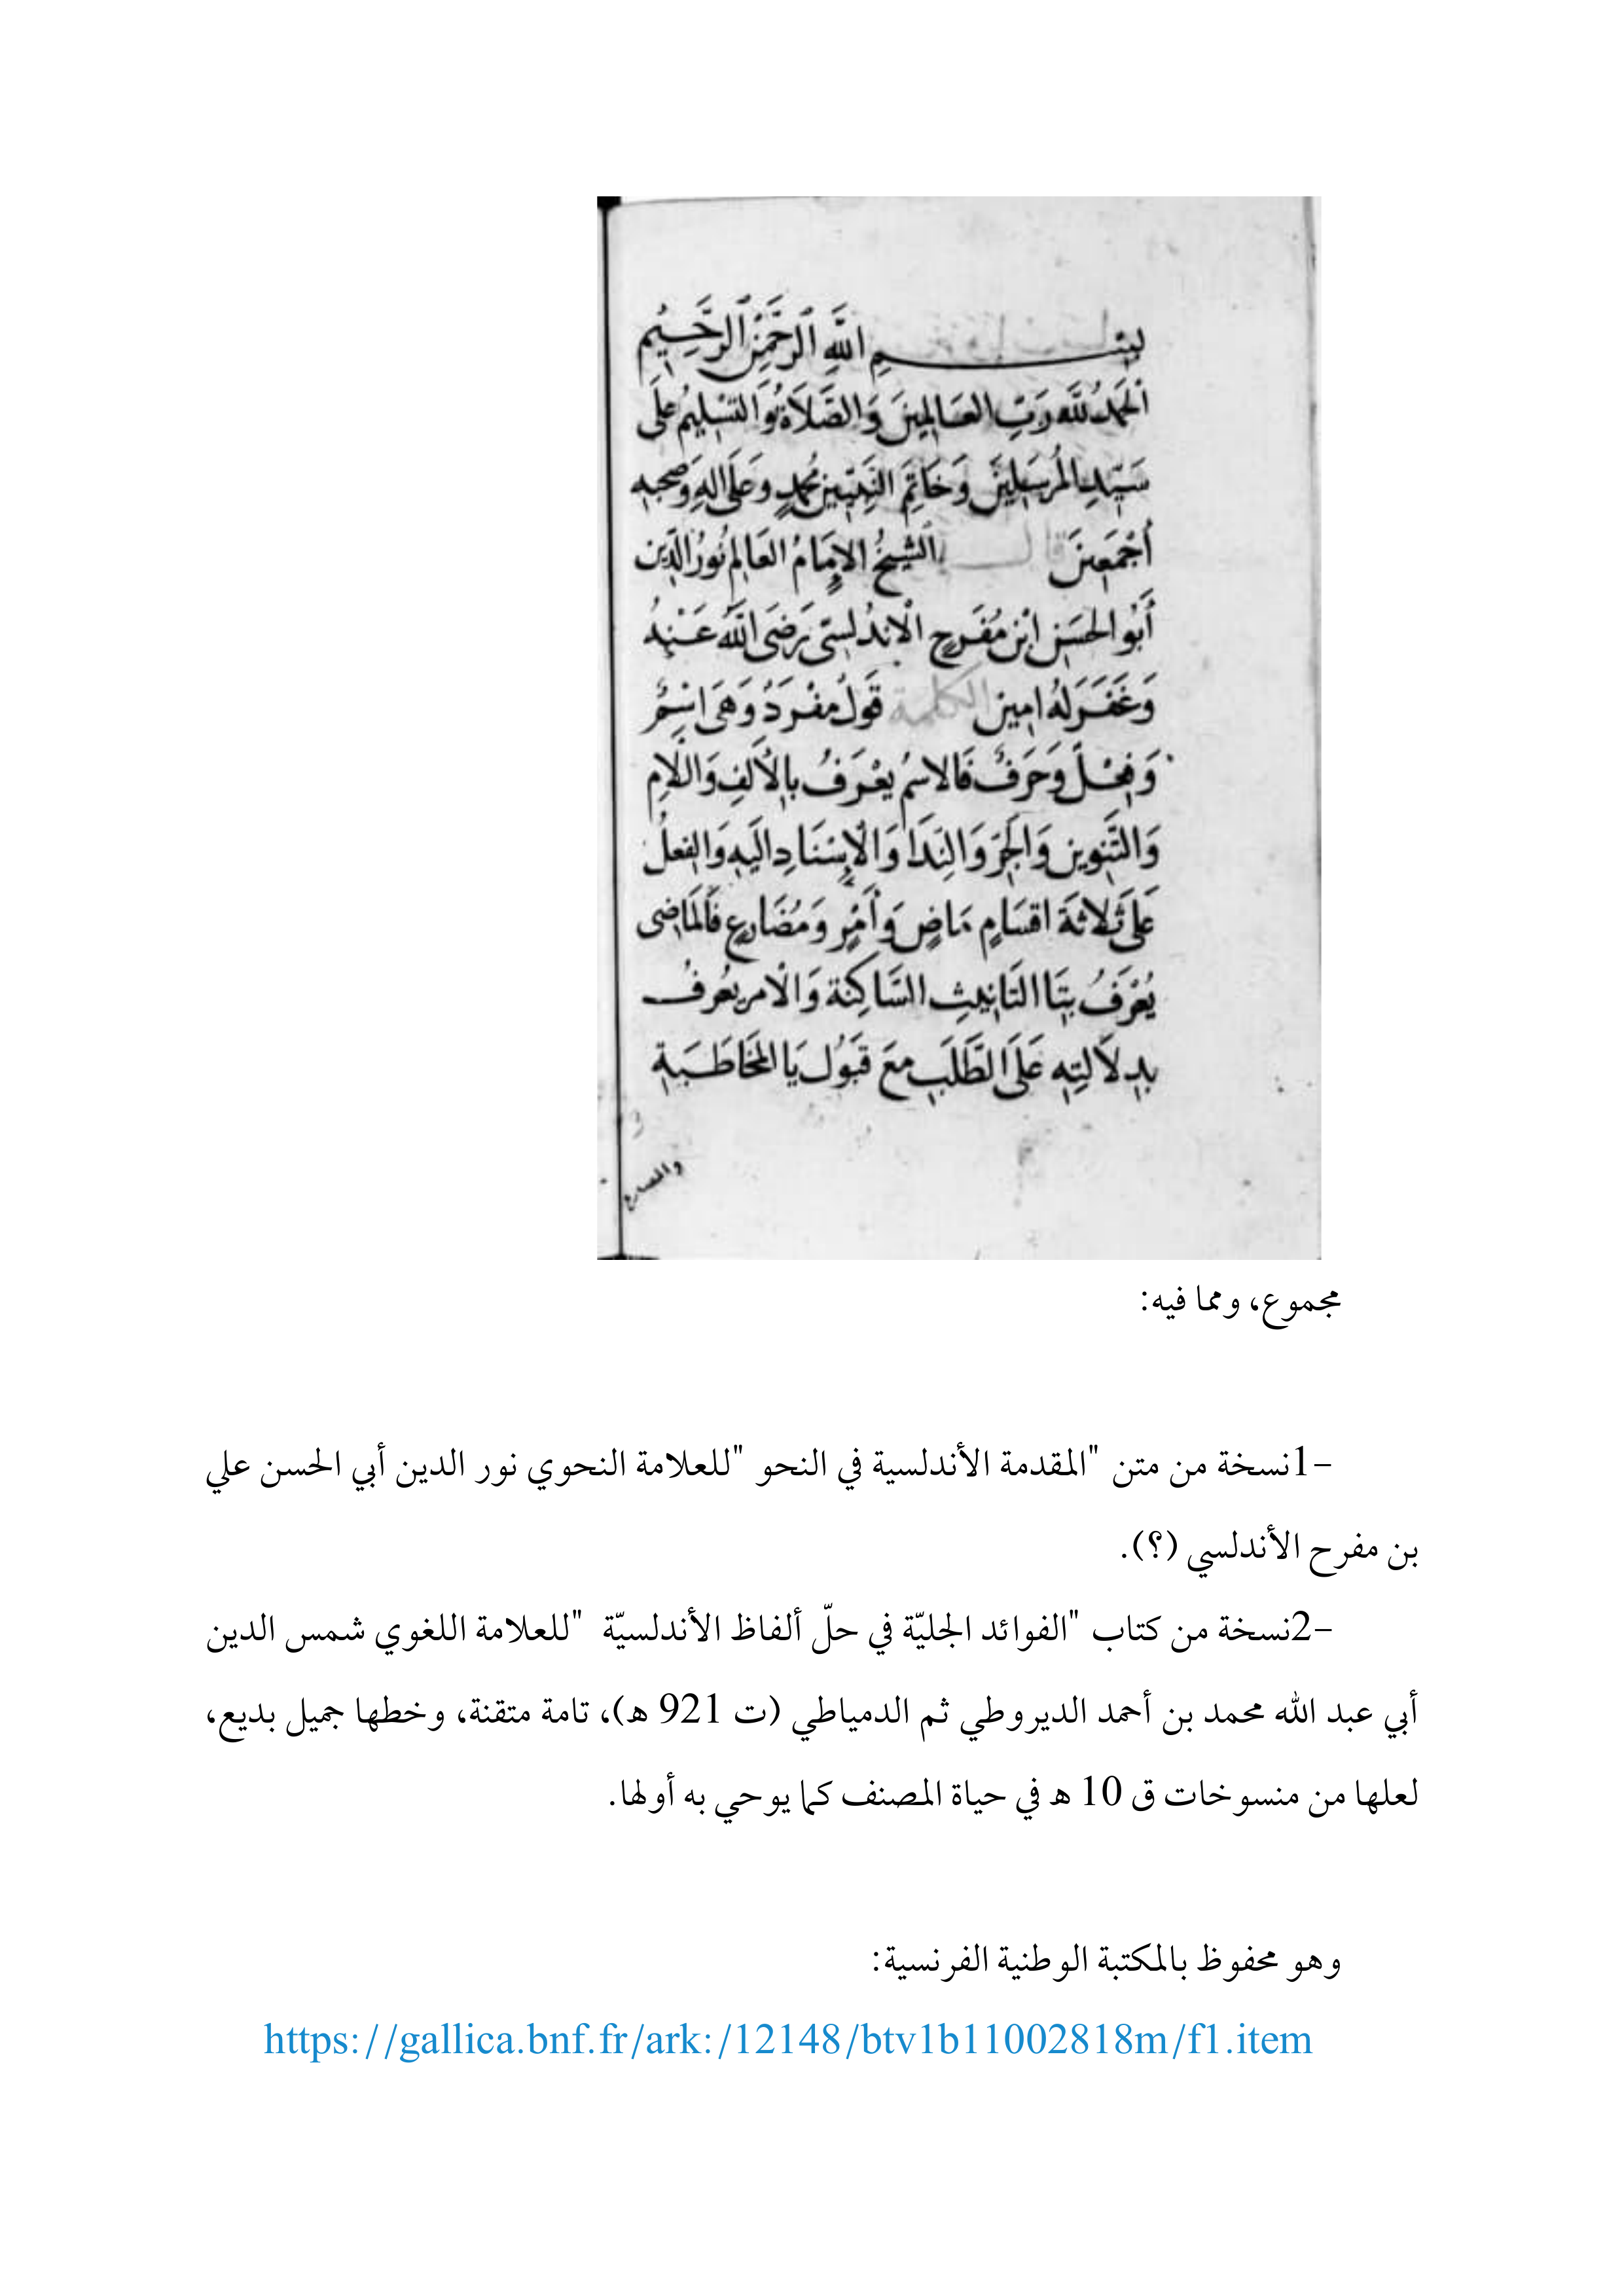 بِسْمِ اللَّهِ الرَّحْمَنِ الرَّحِيمِ
الحَمْدُ لِلَّهِ رَبِّ العَالَمِينَ وَالصَّلَاةُ وَالتَسْلِيمُ عَلَى
سَيِّدِ المُرْسَلِينَ وَخَاتِمَ النَّبِيِّينَ مُحَمَّدٍ وَعَلَى الِهِ وَصَحبِهِ
أَجْمَعِينَ قال الشَيخُ الإِمَامُ العَالِمُ نُورُ الدِّين
أَبُو الحَسَنِ ابْنِ مُفَرِحٍ الْانْدُلسِيّ رَضَىَ اللَّهُ عَنْهُ
وَغَفَرَ لَهُ امِين الكلمة قَوْلُ مُفْرَدٌ وَهَىَ اسْمٌ
وَفِعْلٌ وَحَرفٌ فَالاسمُ يعْرَفُ بِالْأَلفِ وَاللَّامِ
وَالتَّنوِينِ وَالجَرِّ وَالنِدَا وَالْإِسْنَادِ الَيهِ وَالفِعلُ
عَلَى ثَلَاثَةَ اقسَامٍ مَاضٍ وَأَمْرٍ وَمُضَارِعٍ فَالمَاضِى
يُعْرَفُ بِتَا التَانِيثِ السَّاكِنَة وَالْامر يعُرفُ
بِدِلَالَتِهِ عَلَى الطَّلَبِ مَعَ قَبُولِ يَا المُخَاطَبَةِ
والمضارع
مجموع، ومما فيه:
-1نسخة من متن "المقدمة الأندلسية في النحو "للعلامة النحوي نور الدين أبي الحسن علي
بن مفرح الأندلسي (؟).
-2نسخة من كتاب "الفوائد الجليّة في حلّ ألفاظ الأندلسيّة "للعلامة اللغوي شمس الدين
أبي عبد الله محمد بن أحمد الديروطي ثم الدمياطي (ت 921 ه)، تامة متقنة، وخطها جميل بديع،
لعلها من منسوخات ق 10 ه في حياة المصنف كما يوحي به أولها.
وهو محفوظ بالمكتبة الوطنية الفرنسية:
https://gallica.bnf.fr/ark:/12148/btv1b11002818m/f1.item